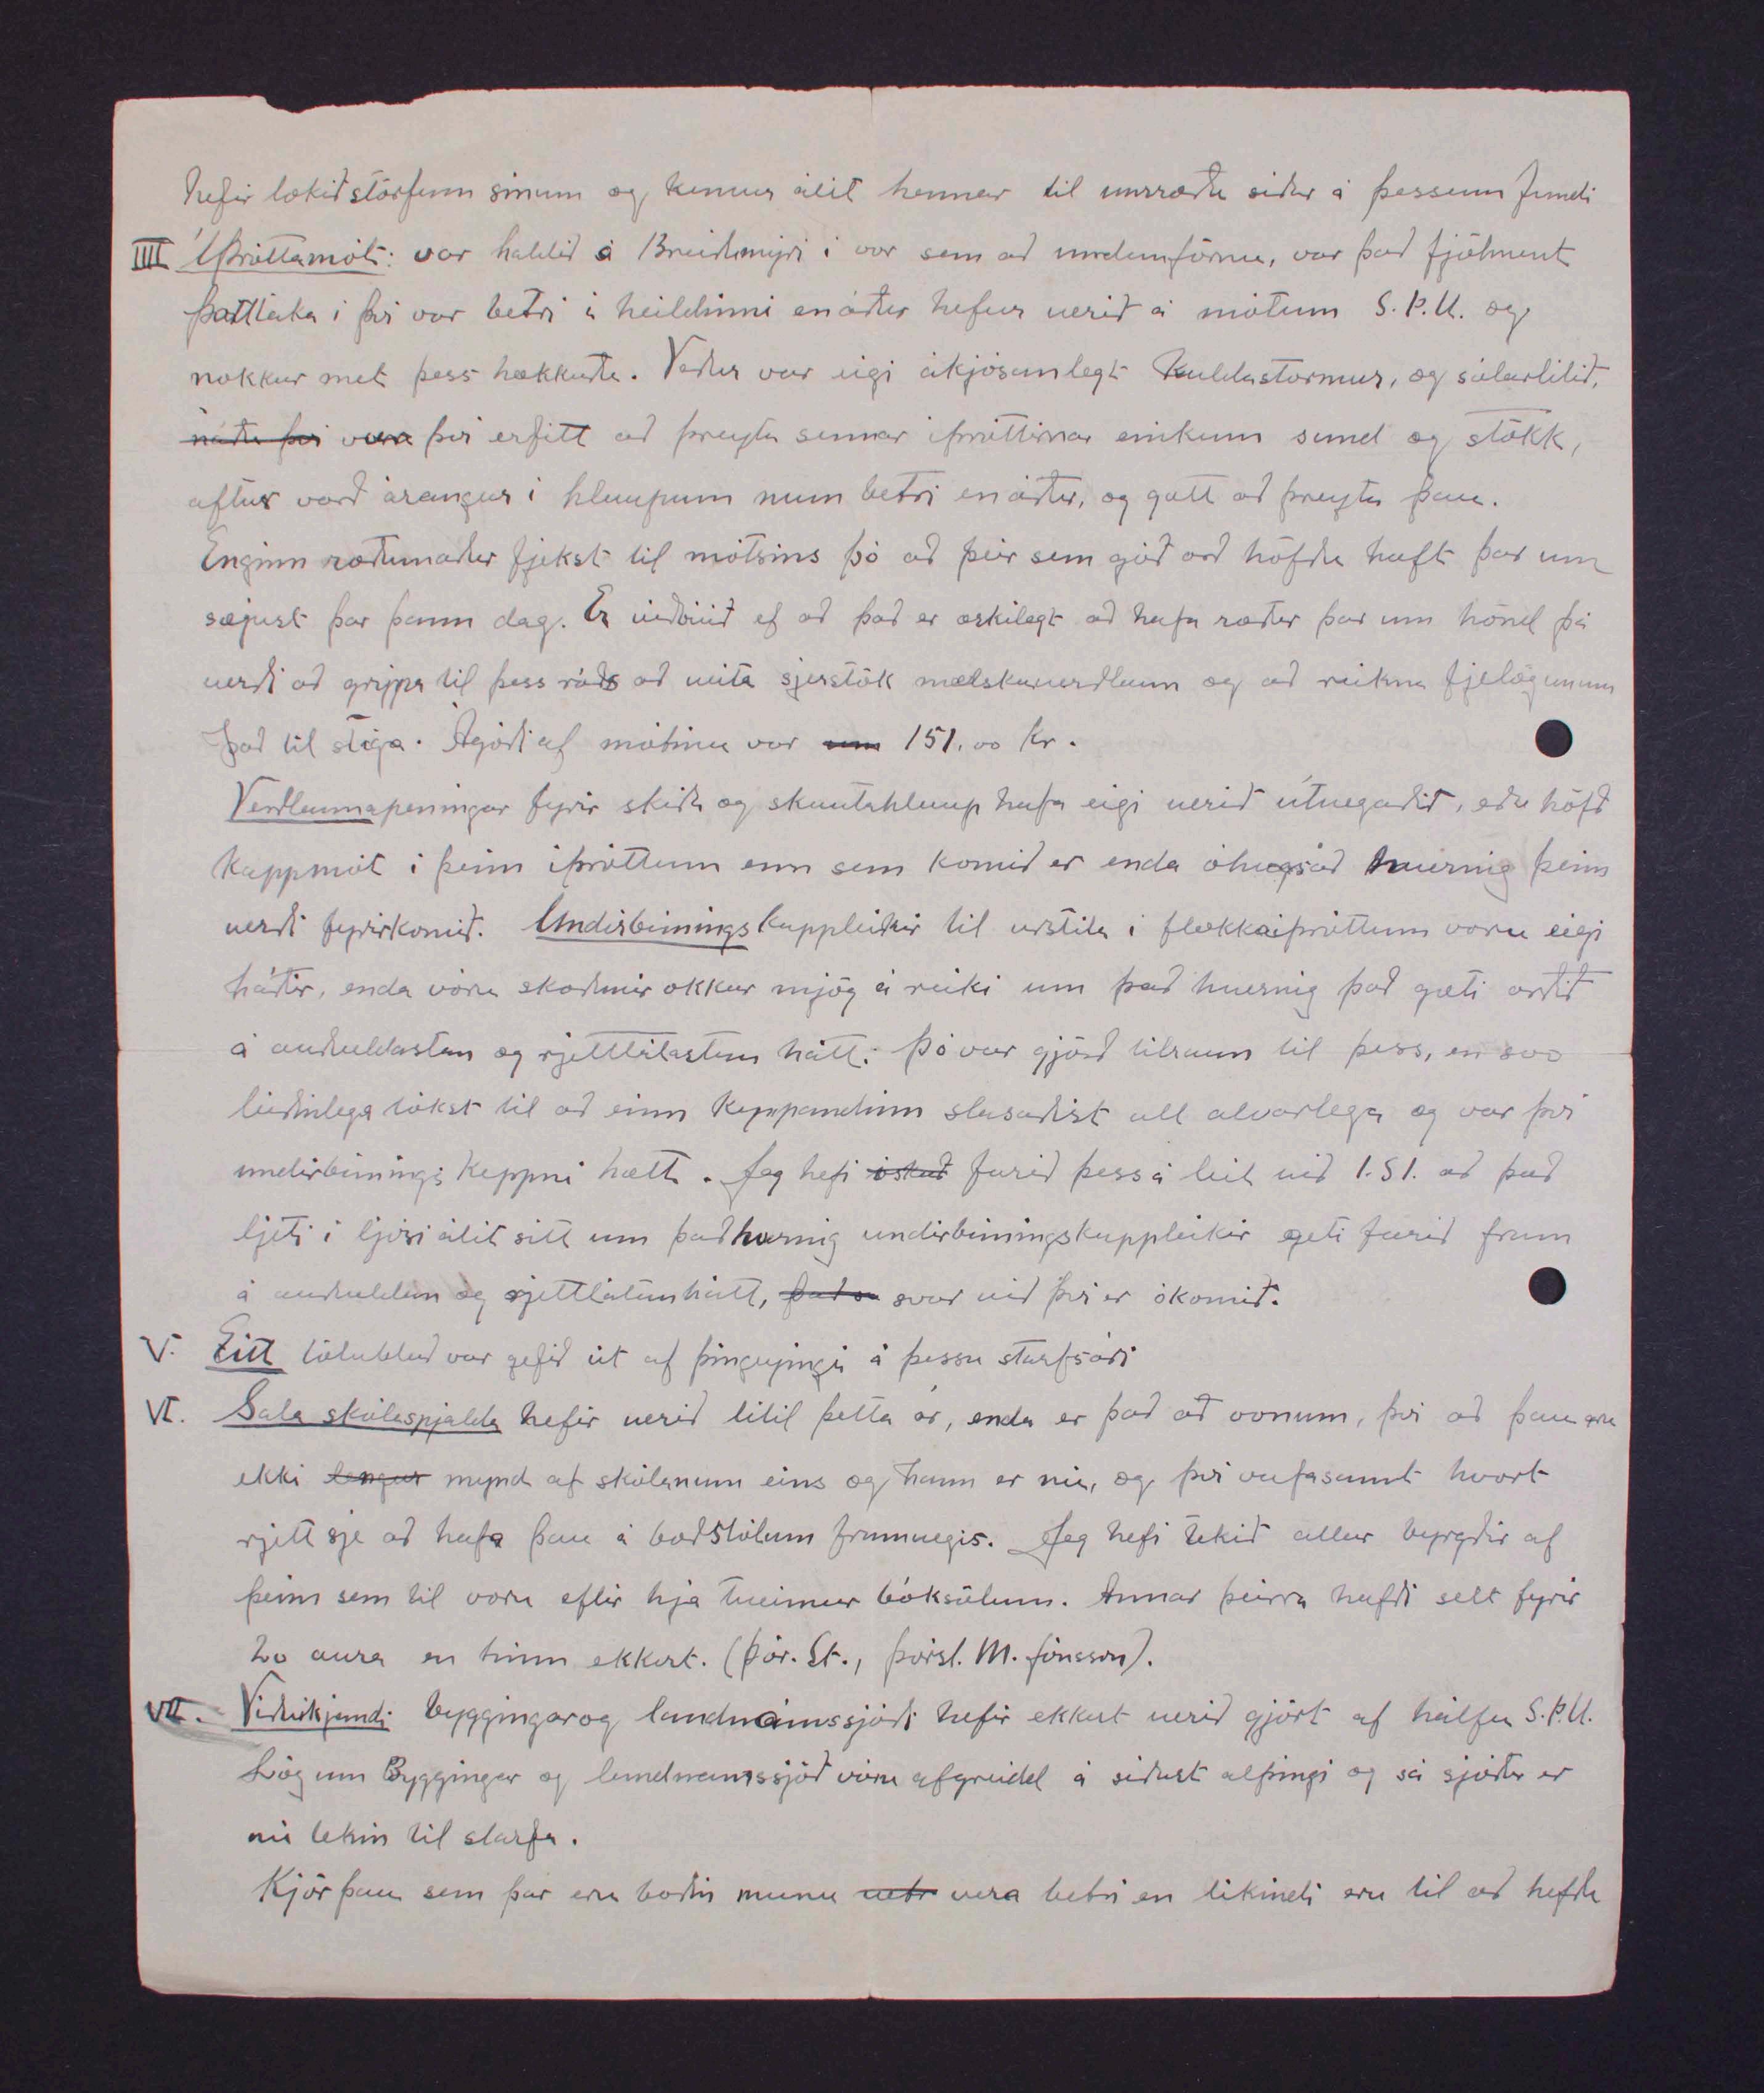 hefir lokið störfum sínum og kemur álit hennar til umræðu síðar á þessum fundi
IIII Íþróttamót: var haldið á Breiðumýri í vor sem að undanförnu, var það fjölment
þátttaka í því var betri í heildinni en áður hefur verið á mótum S.Þ.U. og
nokkur met þess hækkuðu. Veður var eigi ákjósanlegt kuldastormur, og sólarlítið,
því erfitt að þreyta sumar íþróttirnar einkum sund og stökk,
aftur varð árangur í hlaupum mun betri en áður, og gott að þreyta þau.
Enginn ræðumaður fjekst til mótsins þó að þeir sem góð orð höfðu haft þar um
sæjust þar þann dag. Er viðbúið ef að það er æskilegt að hafa ræður þar um hönd þá
verði að grípa til þess ráðs að veita sjerstök mælskuverðlaun og að reikna fjelögunum
það til stiga. Ágóði af mótinu var um 151.00 kr.
Verðlaunapeningar fyrir skíða og skautahlaup hafa eigi verið útvegaðir, eða höfð
kappmót í þeim íþróttum enn sem komið er enda óhugsað hvernig þeim
verði fyrirkomið. Undirbúningskappleikir til úrslita í flokkaíþróttum voru eigi
háðir, enda vóru skoðanir okkar mjög á reiki um það hvernig það gæti orðið
á auðveldastan og rjettlátastan hátt. Þó var gjörð tilraun til þess, en svo
leiðinlega tókst til að einn keppandinn slasaðist all alvarlega og var því
undirbúnings keppni hætt. Jeg hefi óskað farið þess á leit við Í.S.Í. að það
ljeti í ljósi álit sitt um það hvernig undirbúningskappleikir geti farið fram
á auðveldan og rjettlátan hátt, svar við því er ókomið.
V. Eitt tölublað var gefið út af þingeyingi á þessu starfsári
VI. Sala skólaspjalda hefir verið lítil þetta ár, enda er það að vonum, því að þau eru
ekki lengur mynd af skólanum eins og hann er nú, og því vafasamt hvort
rjett sje að hafa þau á boðstólum framvegis. Jeg hefi tekið allar byrgðir af
þeim sem til voru eftir hjá tveimur bóksölum. Annar þeirra hafði selt fyrir
20 aura en hinn ekkert. (Þór. St., Þorst. M. Jónsson).
VII. Viðvikjandi byggingar og landnámssjóði hefir ekkert verið gjört af hálfu S.Þ.U.
Lög um Byggingar og landnámssjóð vóru afgreidd á síðast alþingi og sá sjóður er
nú tekin til starfa.
Kjör þau sem þar eru boðin munu vera betri en líkindi eru til að hefðu